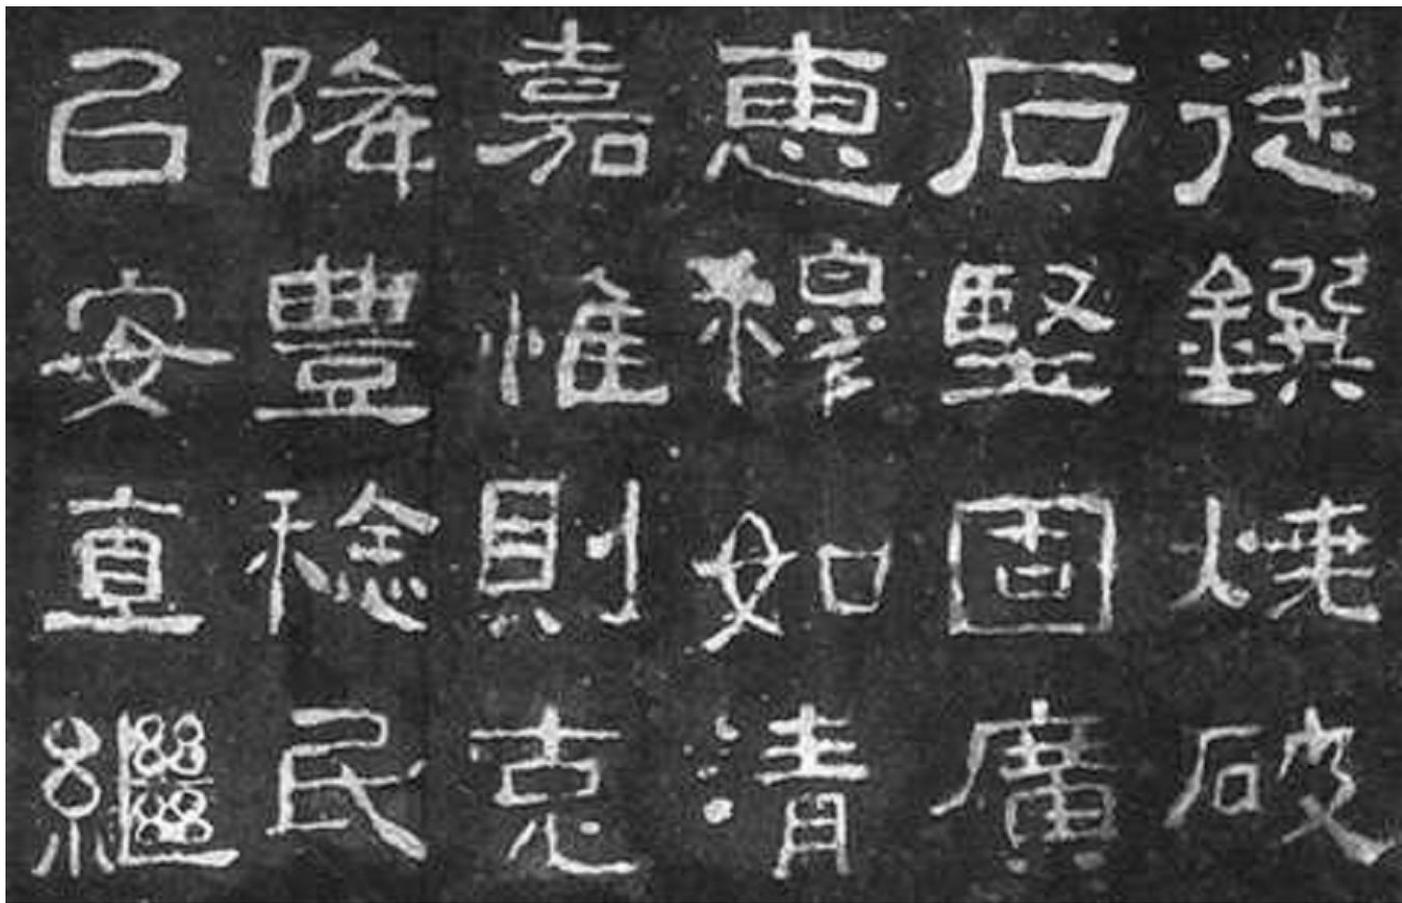 徒鐉燒破
石堅固廣
惠穆如清
嘉惟則克
降豐稔民
以安直繼